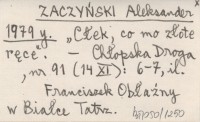 ZACZYŃSKI Aleksander
1979 r. „Człek, co mo złote
ręce". – Chłopska Droga
, nr 91 (14 XI): 6-7, il.
Franciszek Obłaźny
w Białce Tatrz.
/1250